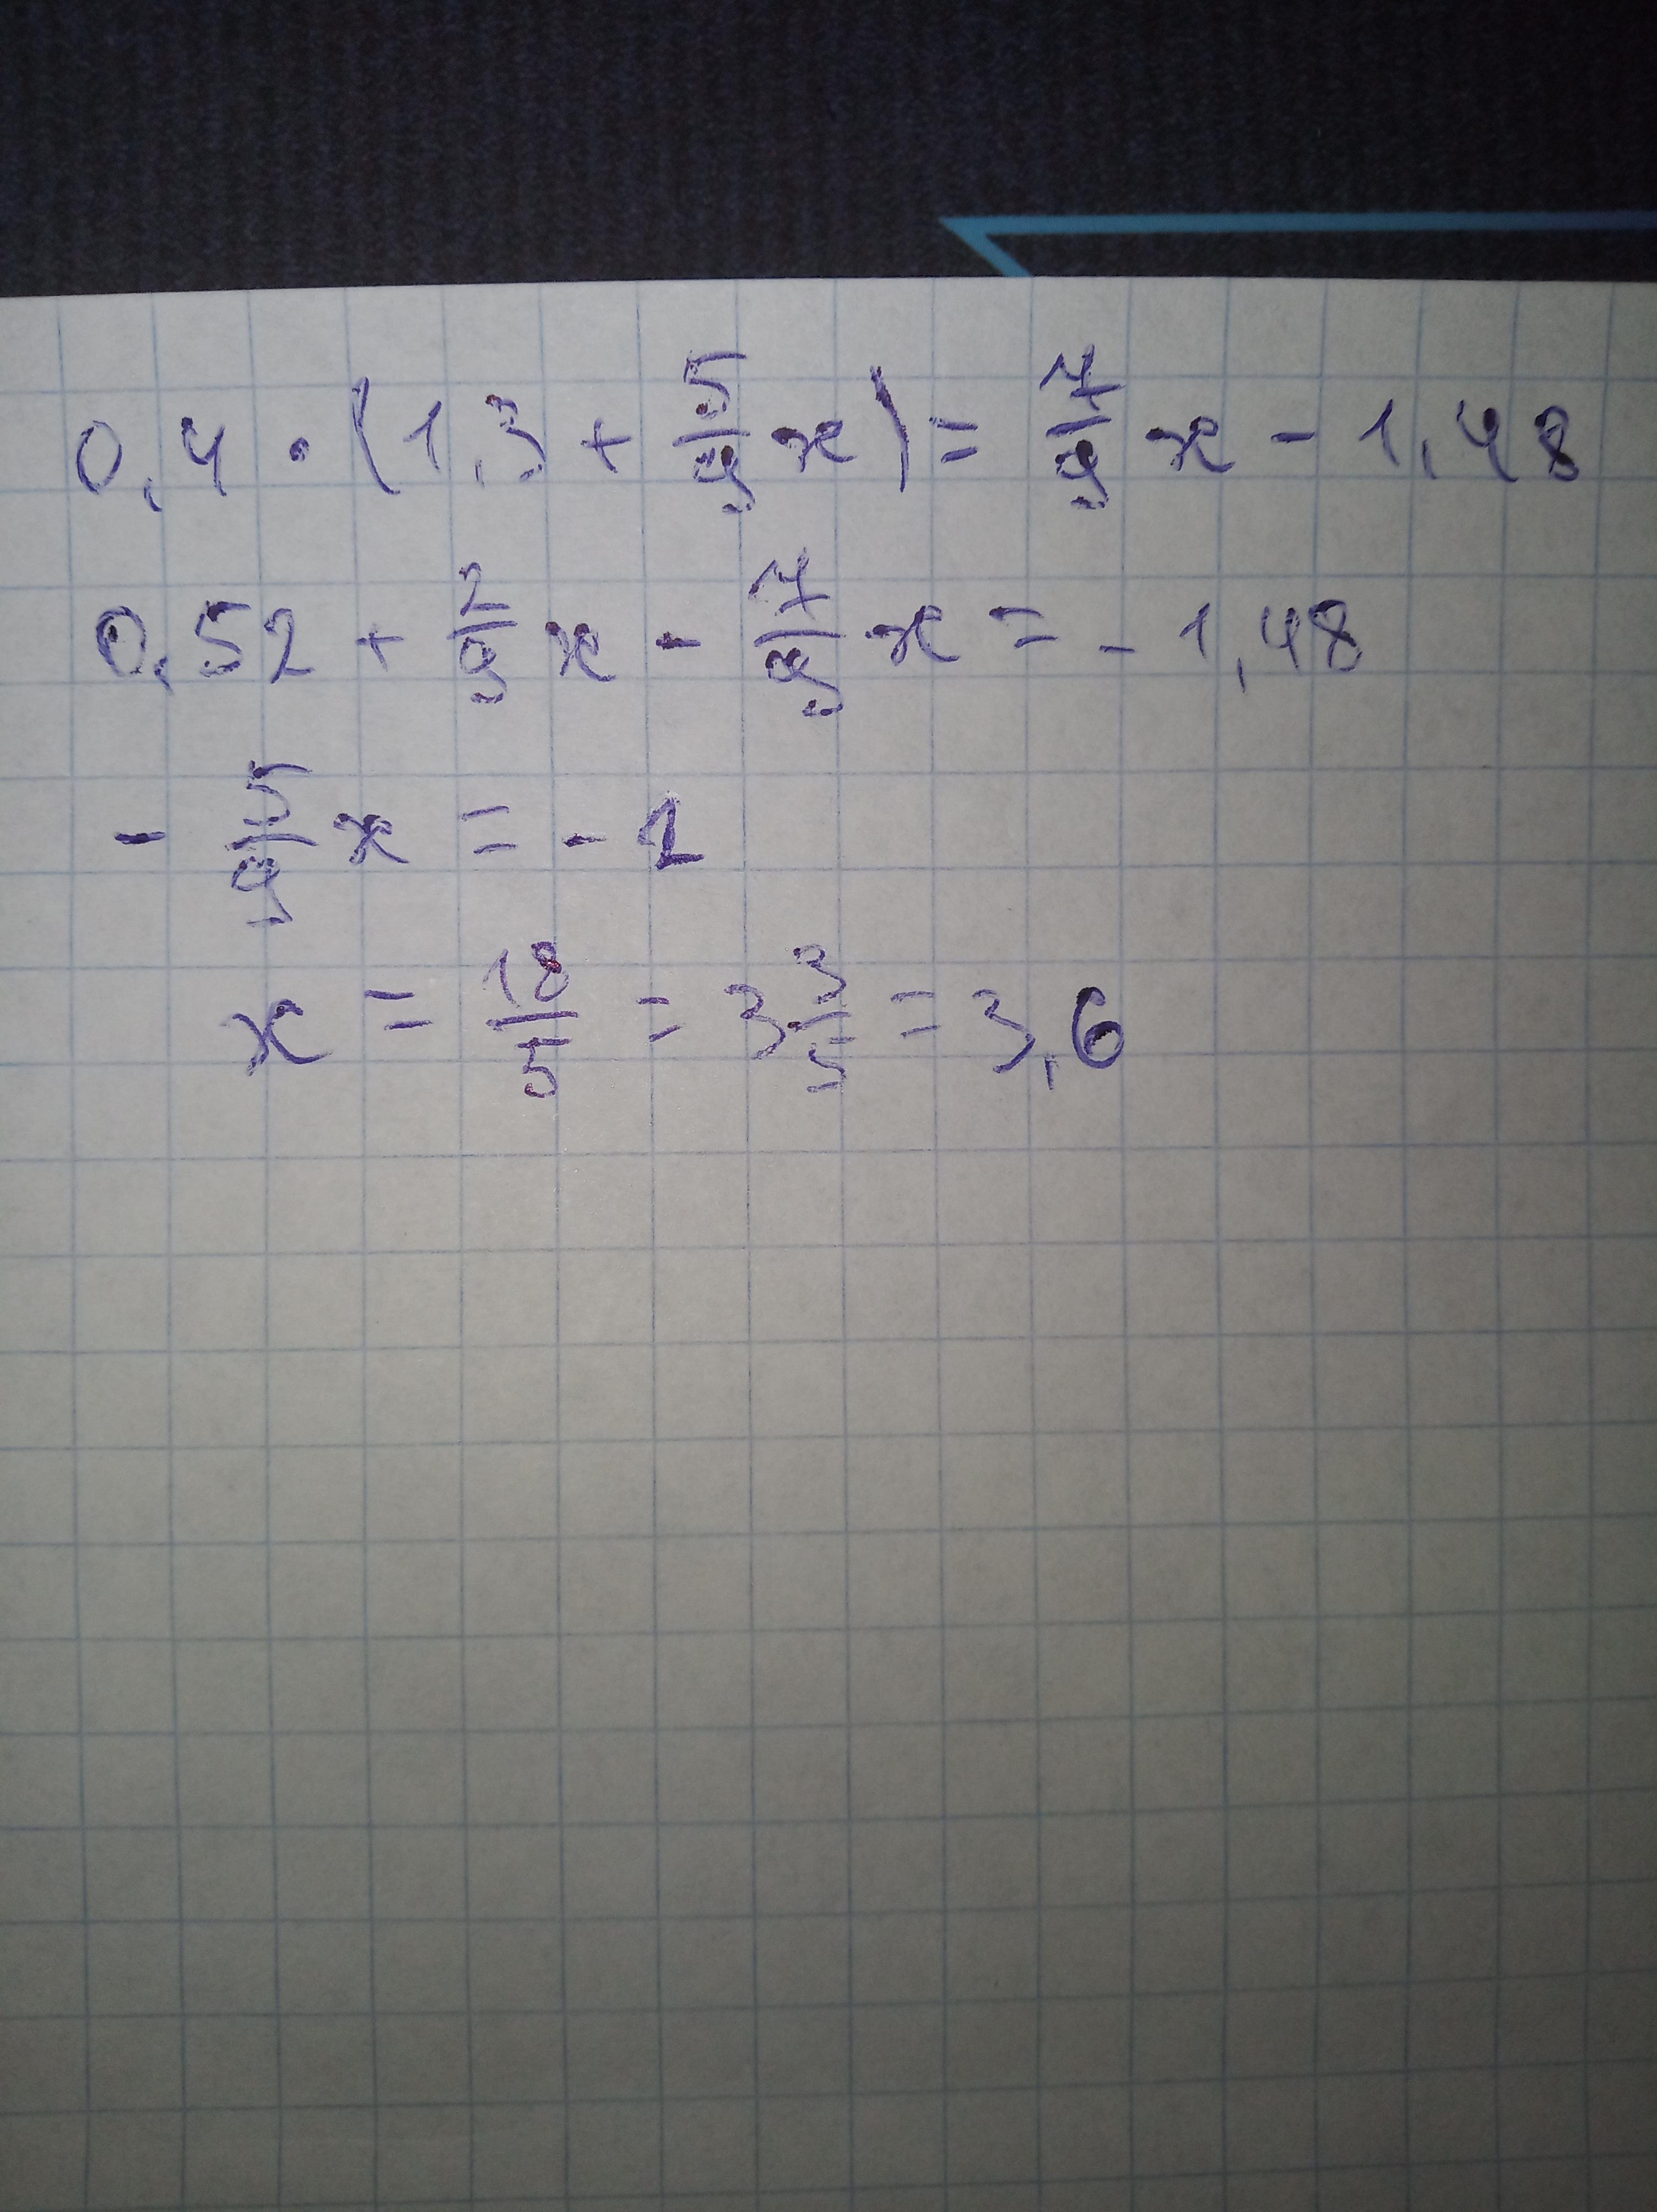 0,4 · (1,3 + 5/9 x) = 7/9 x - 1,48
0,52 + 2/9 x - 7/9 x = - 1,48
- 5/9 x = - 2
x = 18/5 = 3 3/5 = 3,6